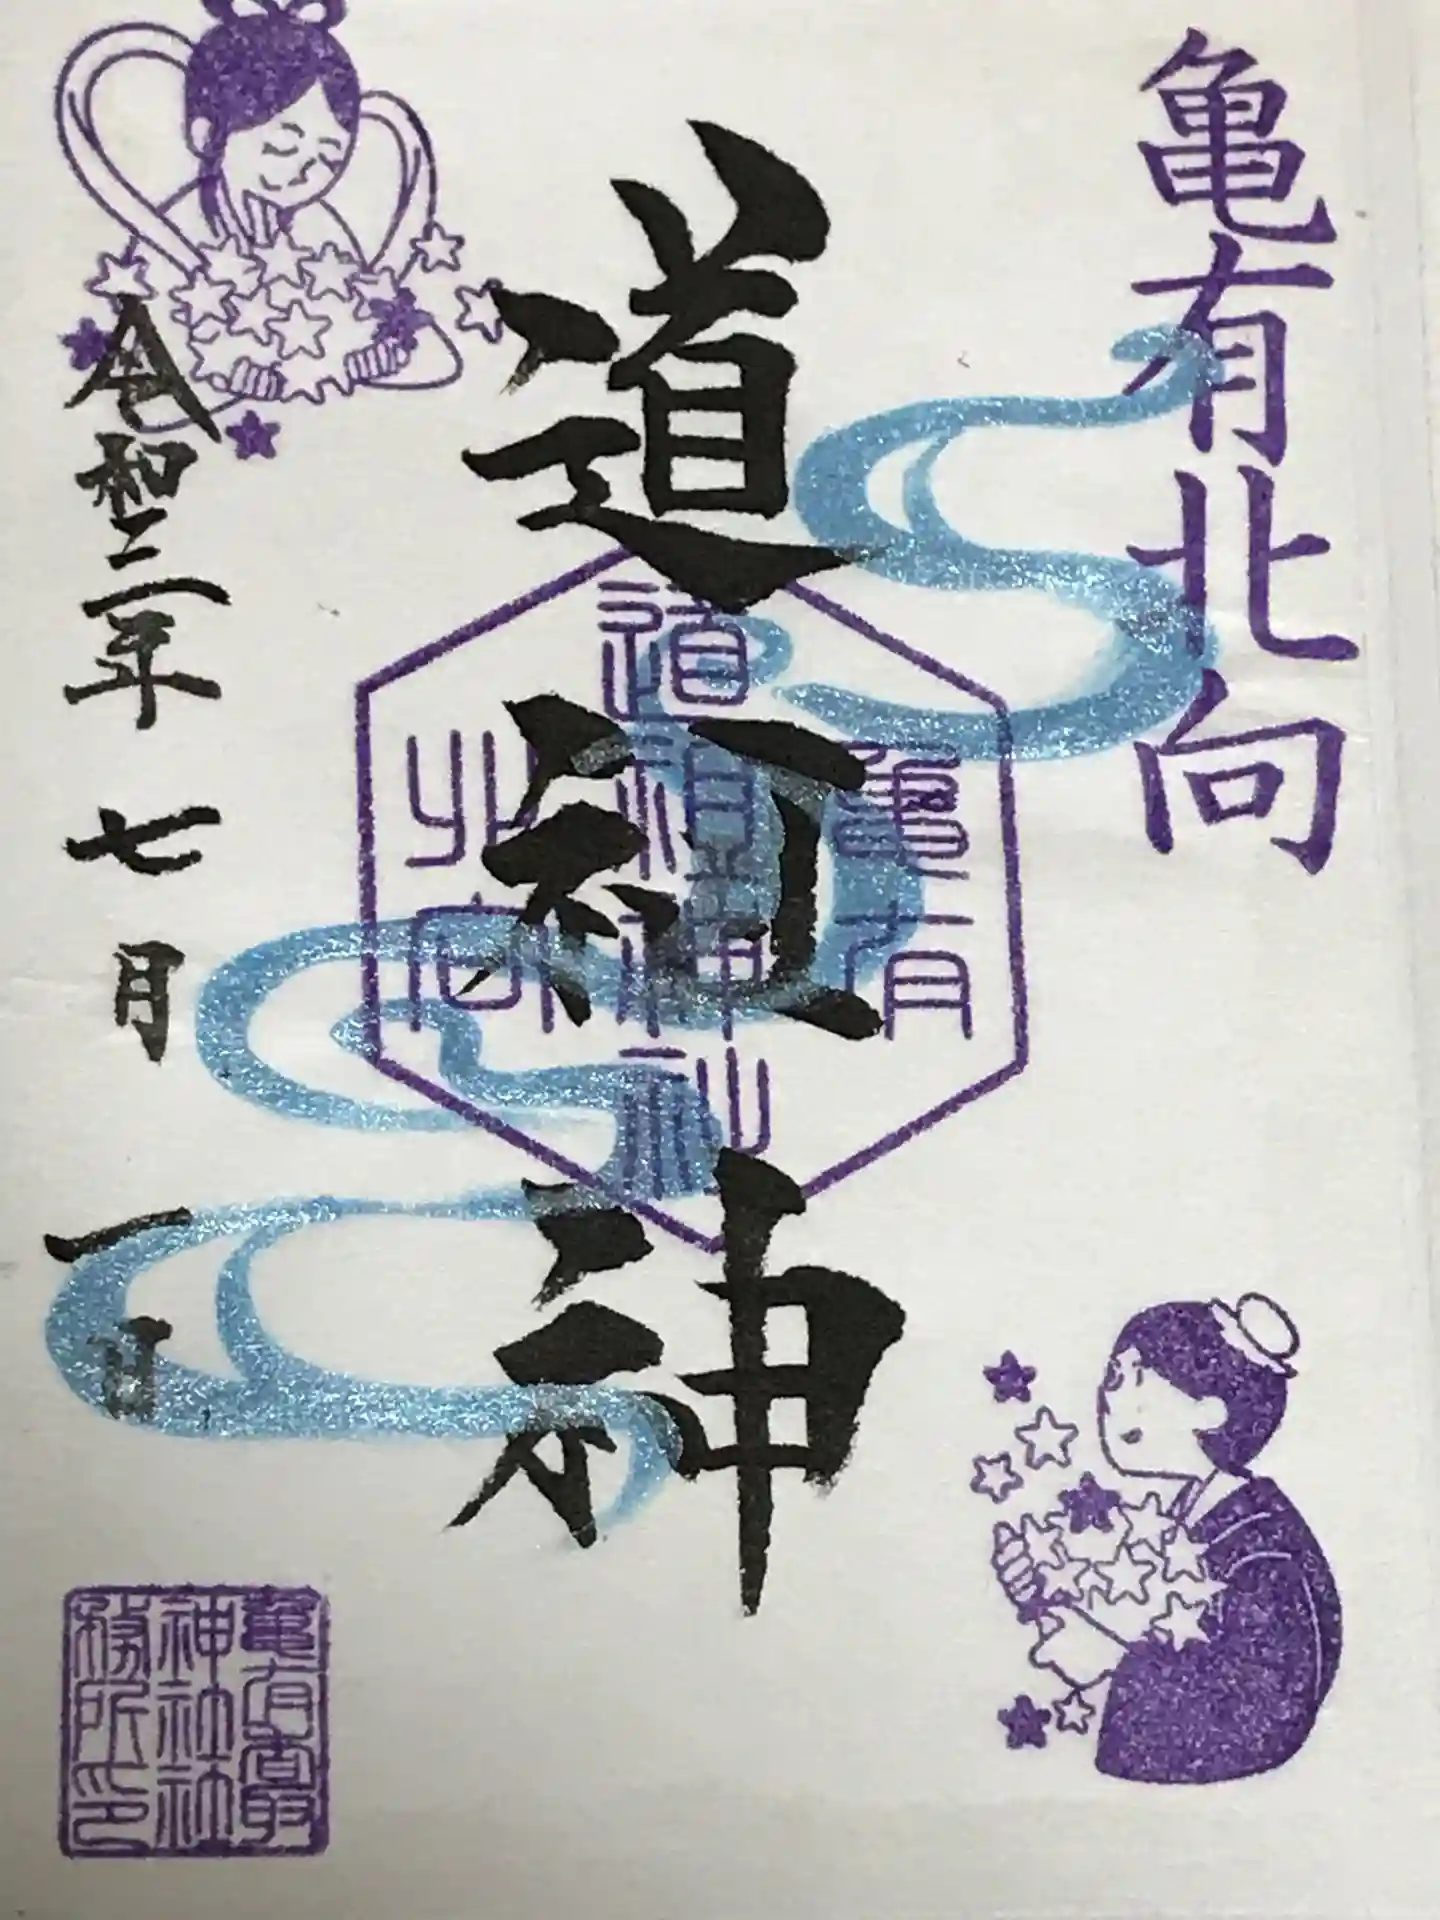 亀有北向
道祖神
令和二年七月一日
亀有
道祖神社
北向
亀有香取
神社社
務所印